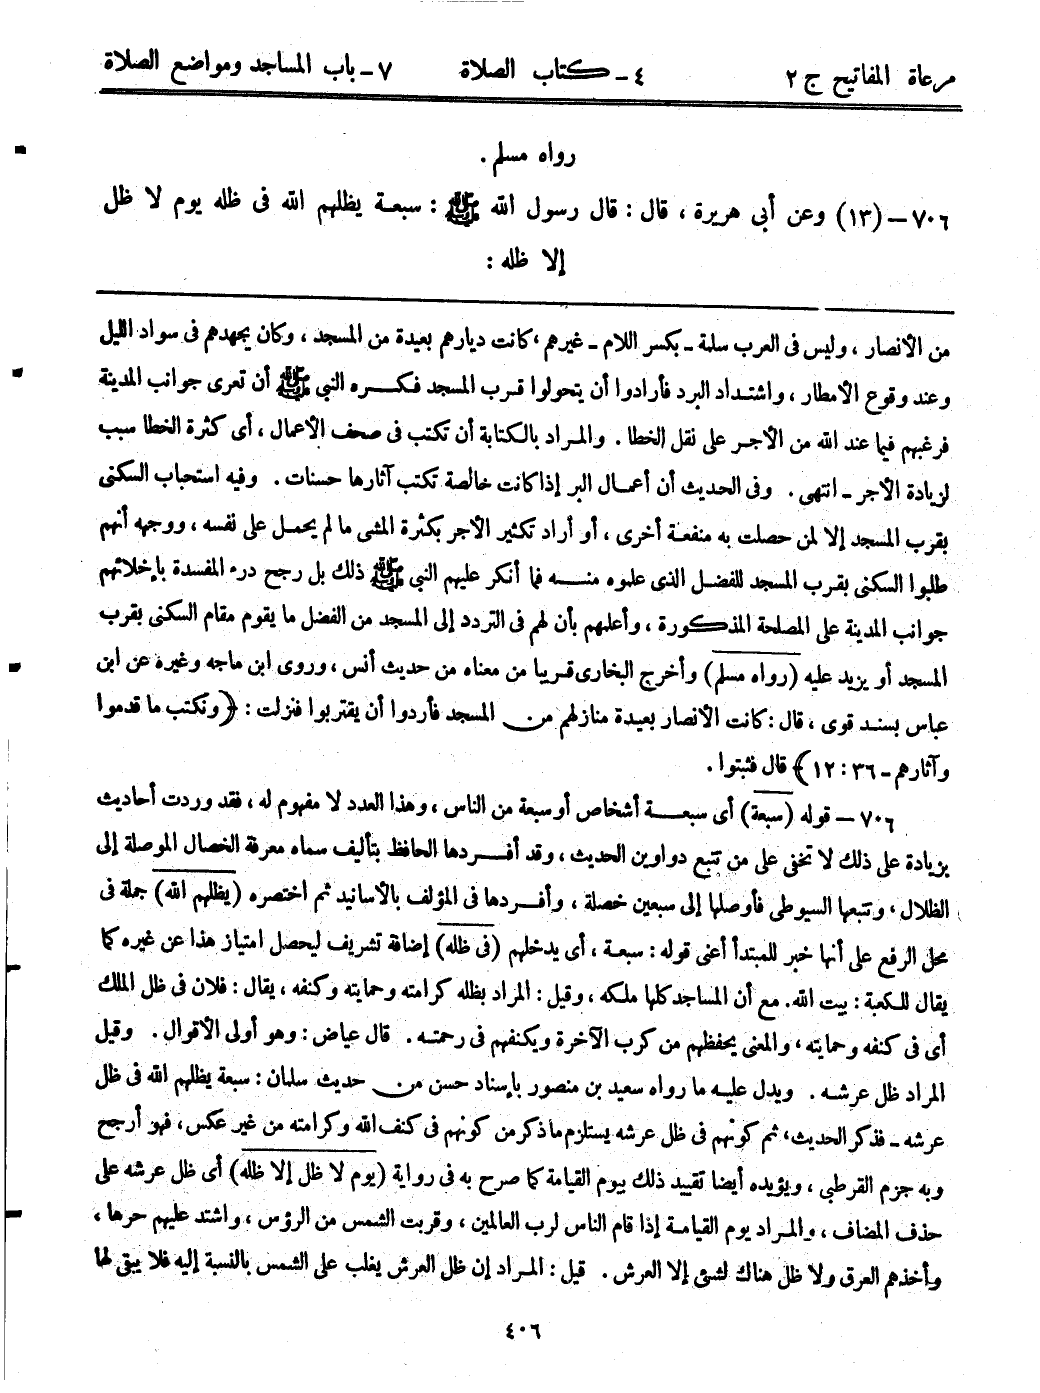 مرعاة المفاتيح ج ٢ ٤ - كتاب الصلاة ٧ - باب المساجد ومواضع الصلاة
رواه مسلم .
٧٠٦ – (١٣) وعن أبى هريرة ، قال : قال رسول الله ﷺ : سبعة يظلهم الله فى ظله يوم لا ظل
إلا ظله :
من الأنصار ، وليس فى العرب سلمة - بكسر اللام - غيرهم ، كانت ديارهم بعيدة من المسجد ، وكان يجهدهم فى سواد الليل
وعند وقوع الأمطار ، واشتداد البرد فأرادوا أن يتحولوا قرب المسجد فكره النبي ﷺ أن تعرى جوانب المدينة
فرغبهم فيما عند الله من الأجر على نقل الخطا . والمراد بالكتابة أن تكتب فى صحف الأعمال ، أى كثرة الخطا سبب
لزيادة الأجر - انتهى . وفى الحديث أن أعمال البر إذا كانت خالصة تكتب آثارها حسنات . وفيه استحباب السكنى
بقرب المسجد إلا لمن حصلت به منفعة أخرى ، أو أراد تكثير الأجر بكثرة المشى ما لم يحمل على نفسه ، ووجهه أنهم
طلبوا السكنى بقرب المسجد للفضل الذى علموه منه فما أنكر عليهم النبي ﷺ ذلك بل رجح درء المفسدة بإخلائهم
جوانب المدينة على المصلحة المذكورة ، وأعلمهم بأن لهم فى التردد إلى المسجد من الفضل ما يقوم مقام السكنى بقرب
المسجد أو يزيد عليه (رواه مسلم) وأخرج البخارى قريبا من معناه من حديث أنس ، وروى ابن ماجه وغيره عن ابن
عباس بسند قوى ، قال : كانت الأنصار بعيدة منازلهم من المسجد فأردوا أن يقتربوا فنزلت : ﴿ونكتب ما قدموا
وآثارهم - ٣٦ : ١٢﴾ قال فثبتوا .
٧٠٦ – قوله (سبعة) أى سبعة أشخاص أو سبعة من الناس ، وهذا العدد لا مفهوم له ، فقد وردت أحاديث
بزيادة على ذلك لا تخفى على من تتبع دواوين الحديث ، وقد أفردها الحافظ بتأليف سماه معرفة الخصال الموصلة إلى
الظلال ، وتتبعها السيوطى فأوصلها إلى سبعين خصلة ، وأفردها فى المؤلف بالأسانيد ثم اختصره (يظلهم الله) جملة فى
محل الرفع على أنها خبر للمبتدأ أعنى قوله : سبعة ، أى يدخلهم (فى ظله) إضافة تشريف ليحصل امتياز هذا عن غيره كما
يقال للكعبة : بيت الله. مع أن المساجد كلها ملكه ، وقيل : المراد بظله كرامته وحمايته وكنفه ، يقال : فلان فى ظل الملك
أى فى كنفه وحمايته ، والمعنى يحفظهم من كرب الآخرة ويكنفهم فى رحمته . قال عياض : وهو أولى الأقوال . وقيل
المراد ظل عرشه . ويدل عليه ما رواه سعيد بن منصور بإسناد حسن من حديث سلمان : سبعة يظلهم الله فى ظل
عرشه - فذكر الحديث ، ثم كونهم فى ظل عرشه يستلزم ما ذكر من كونهم فى كنف الله وكرامته من غير عكس ، فهو أرجح
وبه جزم القرطبى ، ويؤيده أيضا تقييد ذلك بيوم القيامة كما صرح به فى رواية (يوم لا ظل إلا ظله) أى ظل عرشه على
حذف المضاف ، والمراد يوم القيامة إذا قام الناس لرب العالمين ، وقربت الشمس من الرؤس ، واشتد عليهم حرها ،
وأخذهم العرق ولا ظل هناك لشئ إلا العرش . قيل : المراد إن ظل العرش يغلب على الشمس بالنسبة إليه فلا يبقى لها
٤٠٦